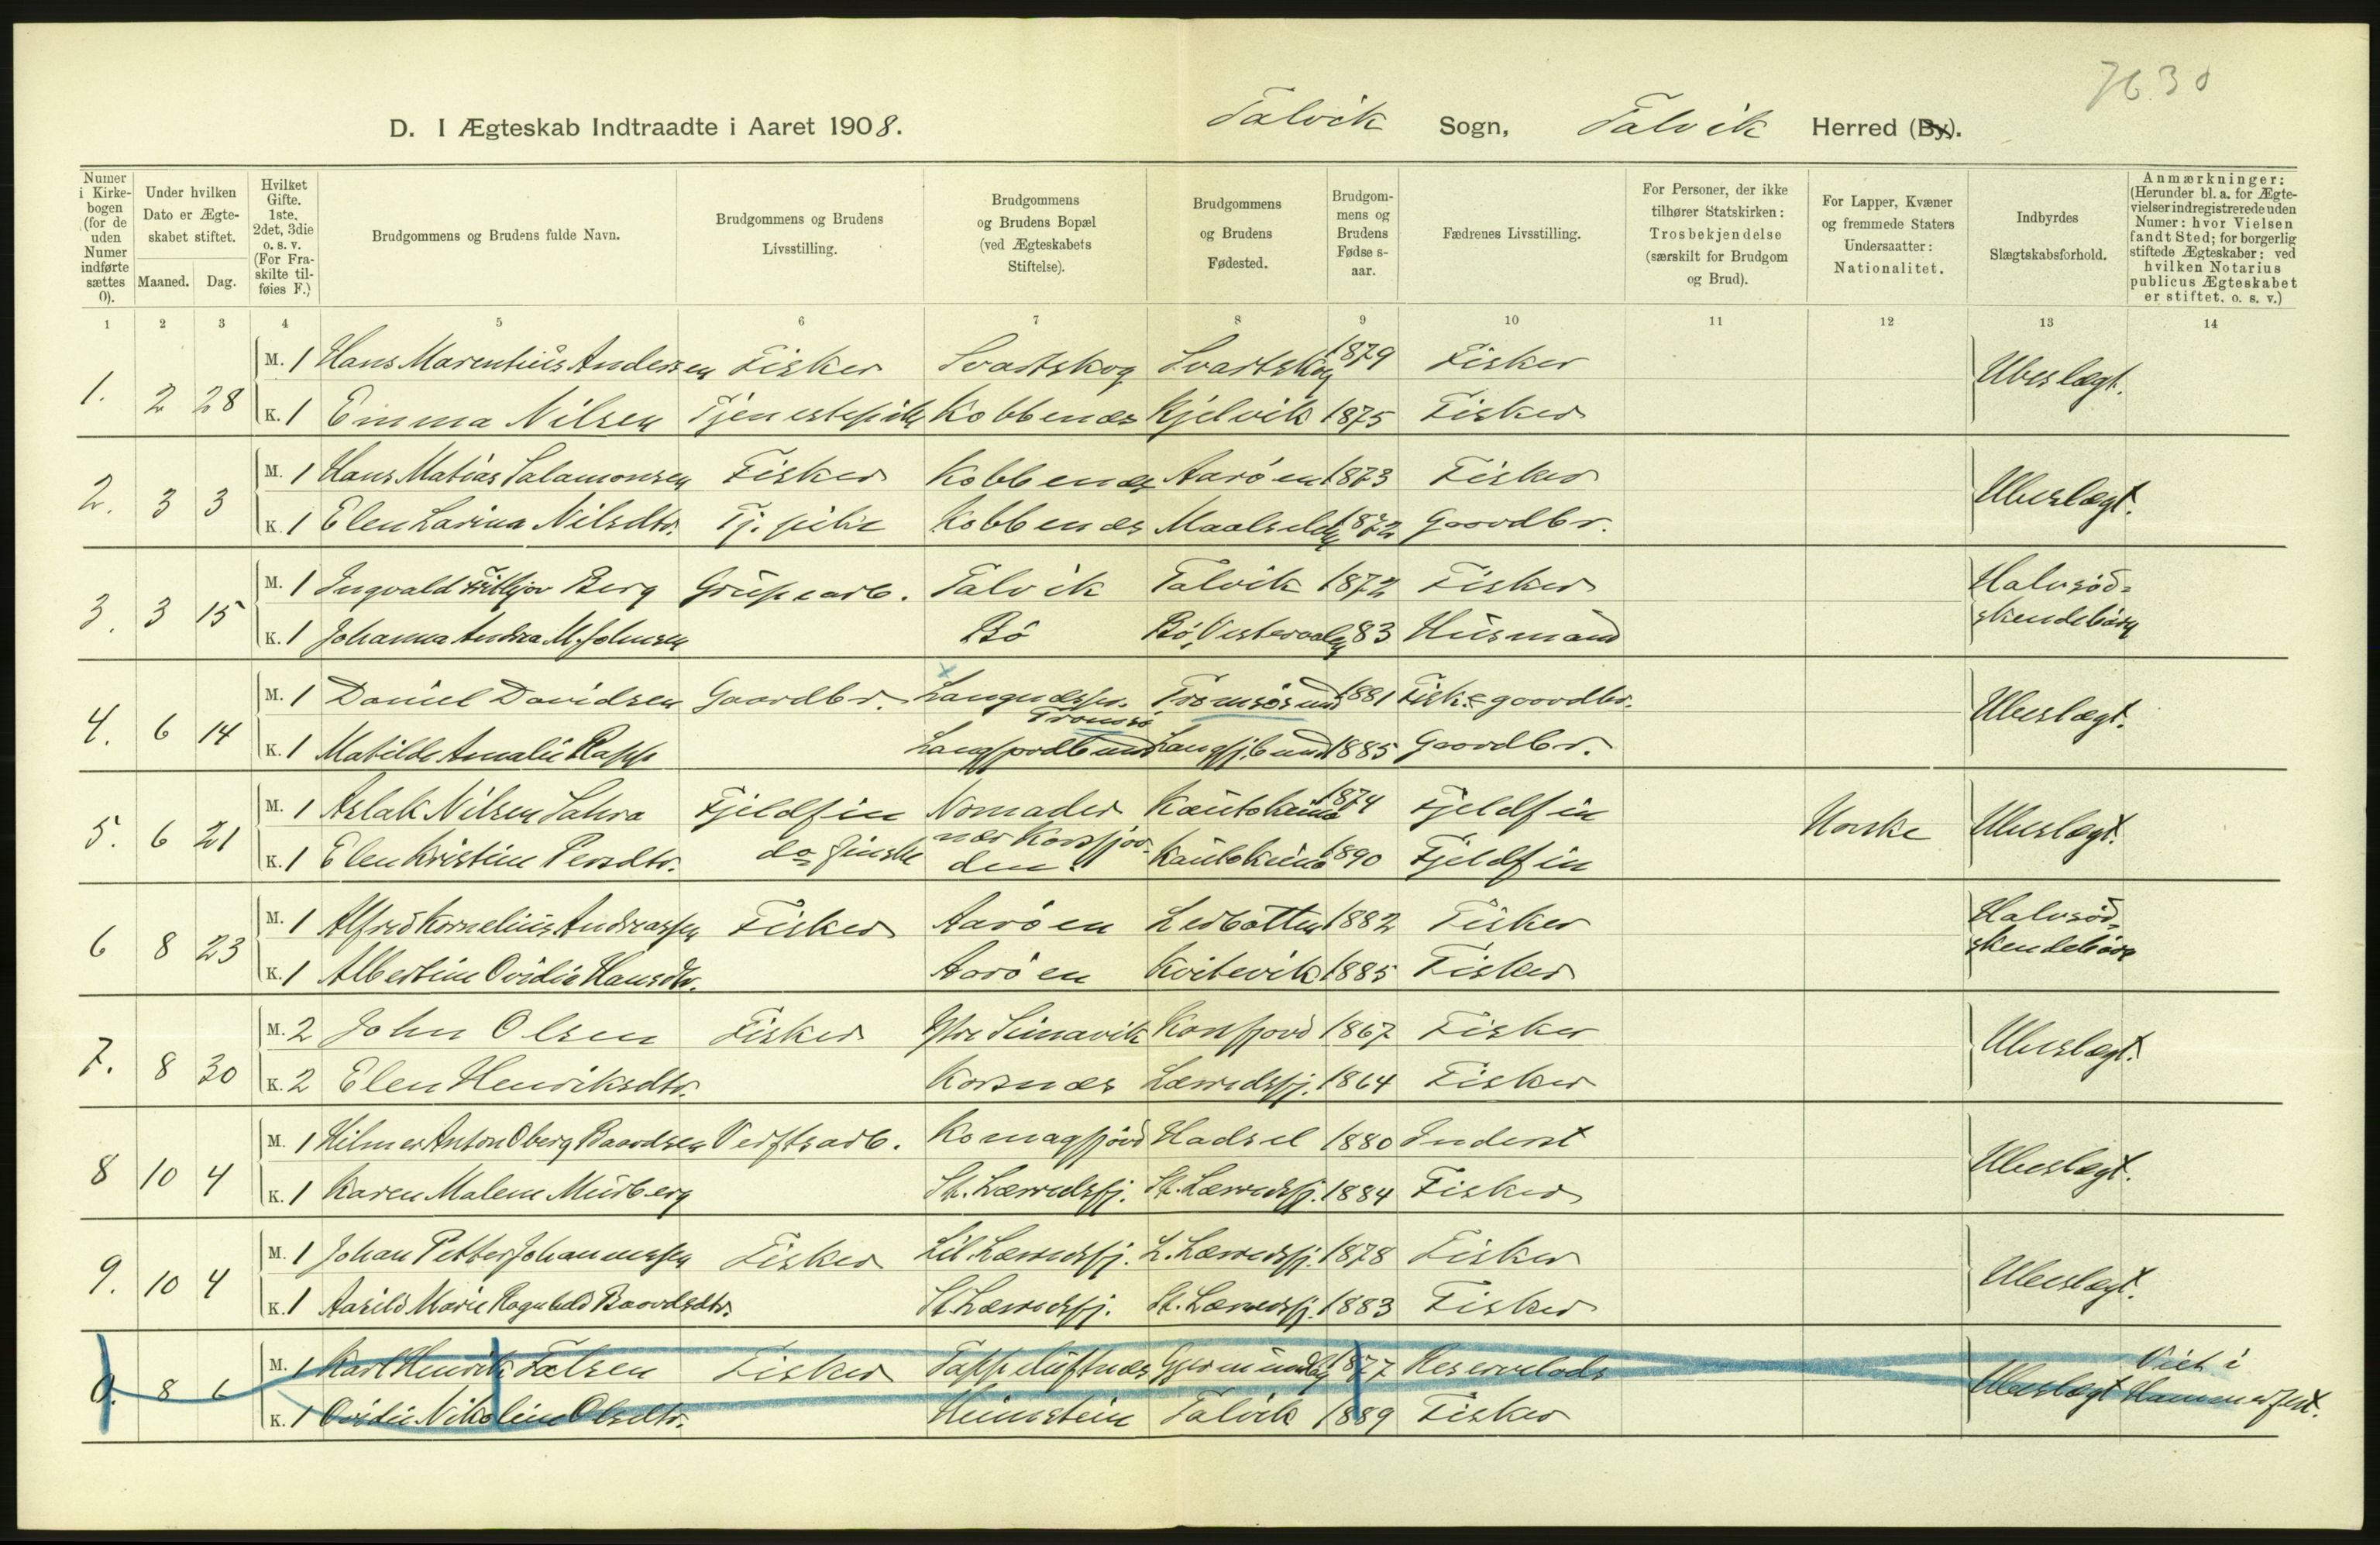 7630
D. I Ægteskab Indtraadte i Aaret 1908. Talvik Sogn, Talvik Herred (By).
Numer i Kirkebogen (for de uden Numer indførte sættes 0).
Under hvilken Dato er Ægteskabet stiftet.
Maaned. Dag.
Hvilket Gifte. 1ste, 2det, 3die o. s. v. (For Fraskilte tilføies F.)
Brudgommens og Brudens fulde Navn.
Brudgommens og Brudens Livsstilling.
Brudgommens og Brudens Bopæl (ved Ægteskabets Stiftelse).
Brudgommens og Brudens Fødested.
Brudgommens og Brudens Fødselsaar.
Fædrenes Livsstilling.
For Personer, der ikke tilhører Statskirken: Trosbekjendelse (særskilt for Brudgom og Brud).
For Lapper, Kvæner og fremmede Staters Undersaatter: Nationalitet.
Indbyrdes Slægtskabsforhold.
Anmærkninger: (Herunder bl. a. for Ægtevielser indregistrerede uden Numer: hvor Vielsen fandt Sted; for borgerlig stiftede Ægteskaber: ved hvilken Notarius publicus Ægteskabet er stiftet. o. s. v.)
1 2 3 4 5 6 7 8 9 10 11 12 13 14
1. 2 28 M. 1 Hans Marentius Andersen Fisker Svartskog Svartskog 1879 Fisker Ubeslægt.
K. 1 Emma Nilsen Tjenestepike Kobbenæs Kjelvik 1875 Fisker
2. 3 3 M. 1 Hans Matias Salamonsen Fisker Kobbenæs Aarøen 1873 Fisker Ubeslægt.
K. 1 Elen Larina Nilsdtr. Tj. pike Kobbenæs Maalselven 1872 Gaardbr.
3. 3 15 M. 1 Ingvald Frithjov Berg Grubearb. Talvik Talvik 1872 Fisker Halvsød-
K. 1 Johanna Andrea M. Johnsen Bö Bö, Vesteraalen 83 Husmand skendebarn
4. 6 14 M. 1 Daniel Davidsen Gaardbr. Langnæs pr. Tromsø Tromsøsund 1881 Fisk. & gaardbr. Ubeslægt.
K. 1 Matilde Amalie Rapp Langfjordbund Langfj.bund 1885 Gaardbr.
5. 6 21 M. 1 Aslak Nilsen Sahra Fjeldfin Nomader Kautokeino 1874 Fjeldfin Norske Ubeslægt.
K. 1 Elen Kristine Persdtr. do finske nær Korsfjorden Kautokeino 1890 Fjeldfin
6 8 23 M. 1 Alfred Kornelius Andreassen Fisker Aarøen Lerbotten 1882 Fisker Halvsød-
K. 1 Albertine Ovidie Hansdtr. Aarøen Kvitevik 1885 Fisker skendebarn
7. 8 30 M. 2 John Olsen Fisker Simavik Korsfjord 1867 Fisker Ubeslægt.
K. 2 Elen Henriksdtr. Korsnæs Lærredsfj. 1864 Fisker
8 10 4 M. 1 Hilmer Anton Oberg Baardsen Verftsarb. Komagfjord Hadsel 1880 Inderst Ubeslægt.
K. 1 Karen Malene Murberg St. Lærredsfj. St. Lærredsfj. 1884 Fisker
9. 10 4 M. 1 Johan Petter Johannessen Fisker Lil. Lærredsfj. L. Lærredsfj. 1878 Fisker Ubeslægt.
K. 1 Aasild Marie Ragnhild Baardsdtr. St. Lærredsfj. St. Lærredsfj. 1883 Fisker
0. 8 6 M. 1 Karl Henrik Falsen Fisker Tappeluftnæs 1877 Reservelods Ubeslægt Viet i
K. 1 Ovidie Nikoline Olsdtr. Heimstein Talvik 1889 Fisker Hammerfest.